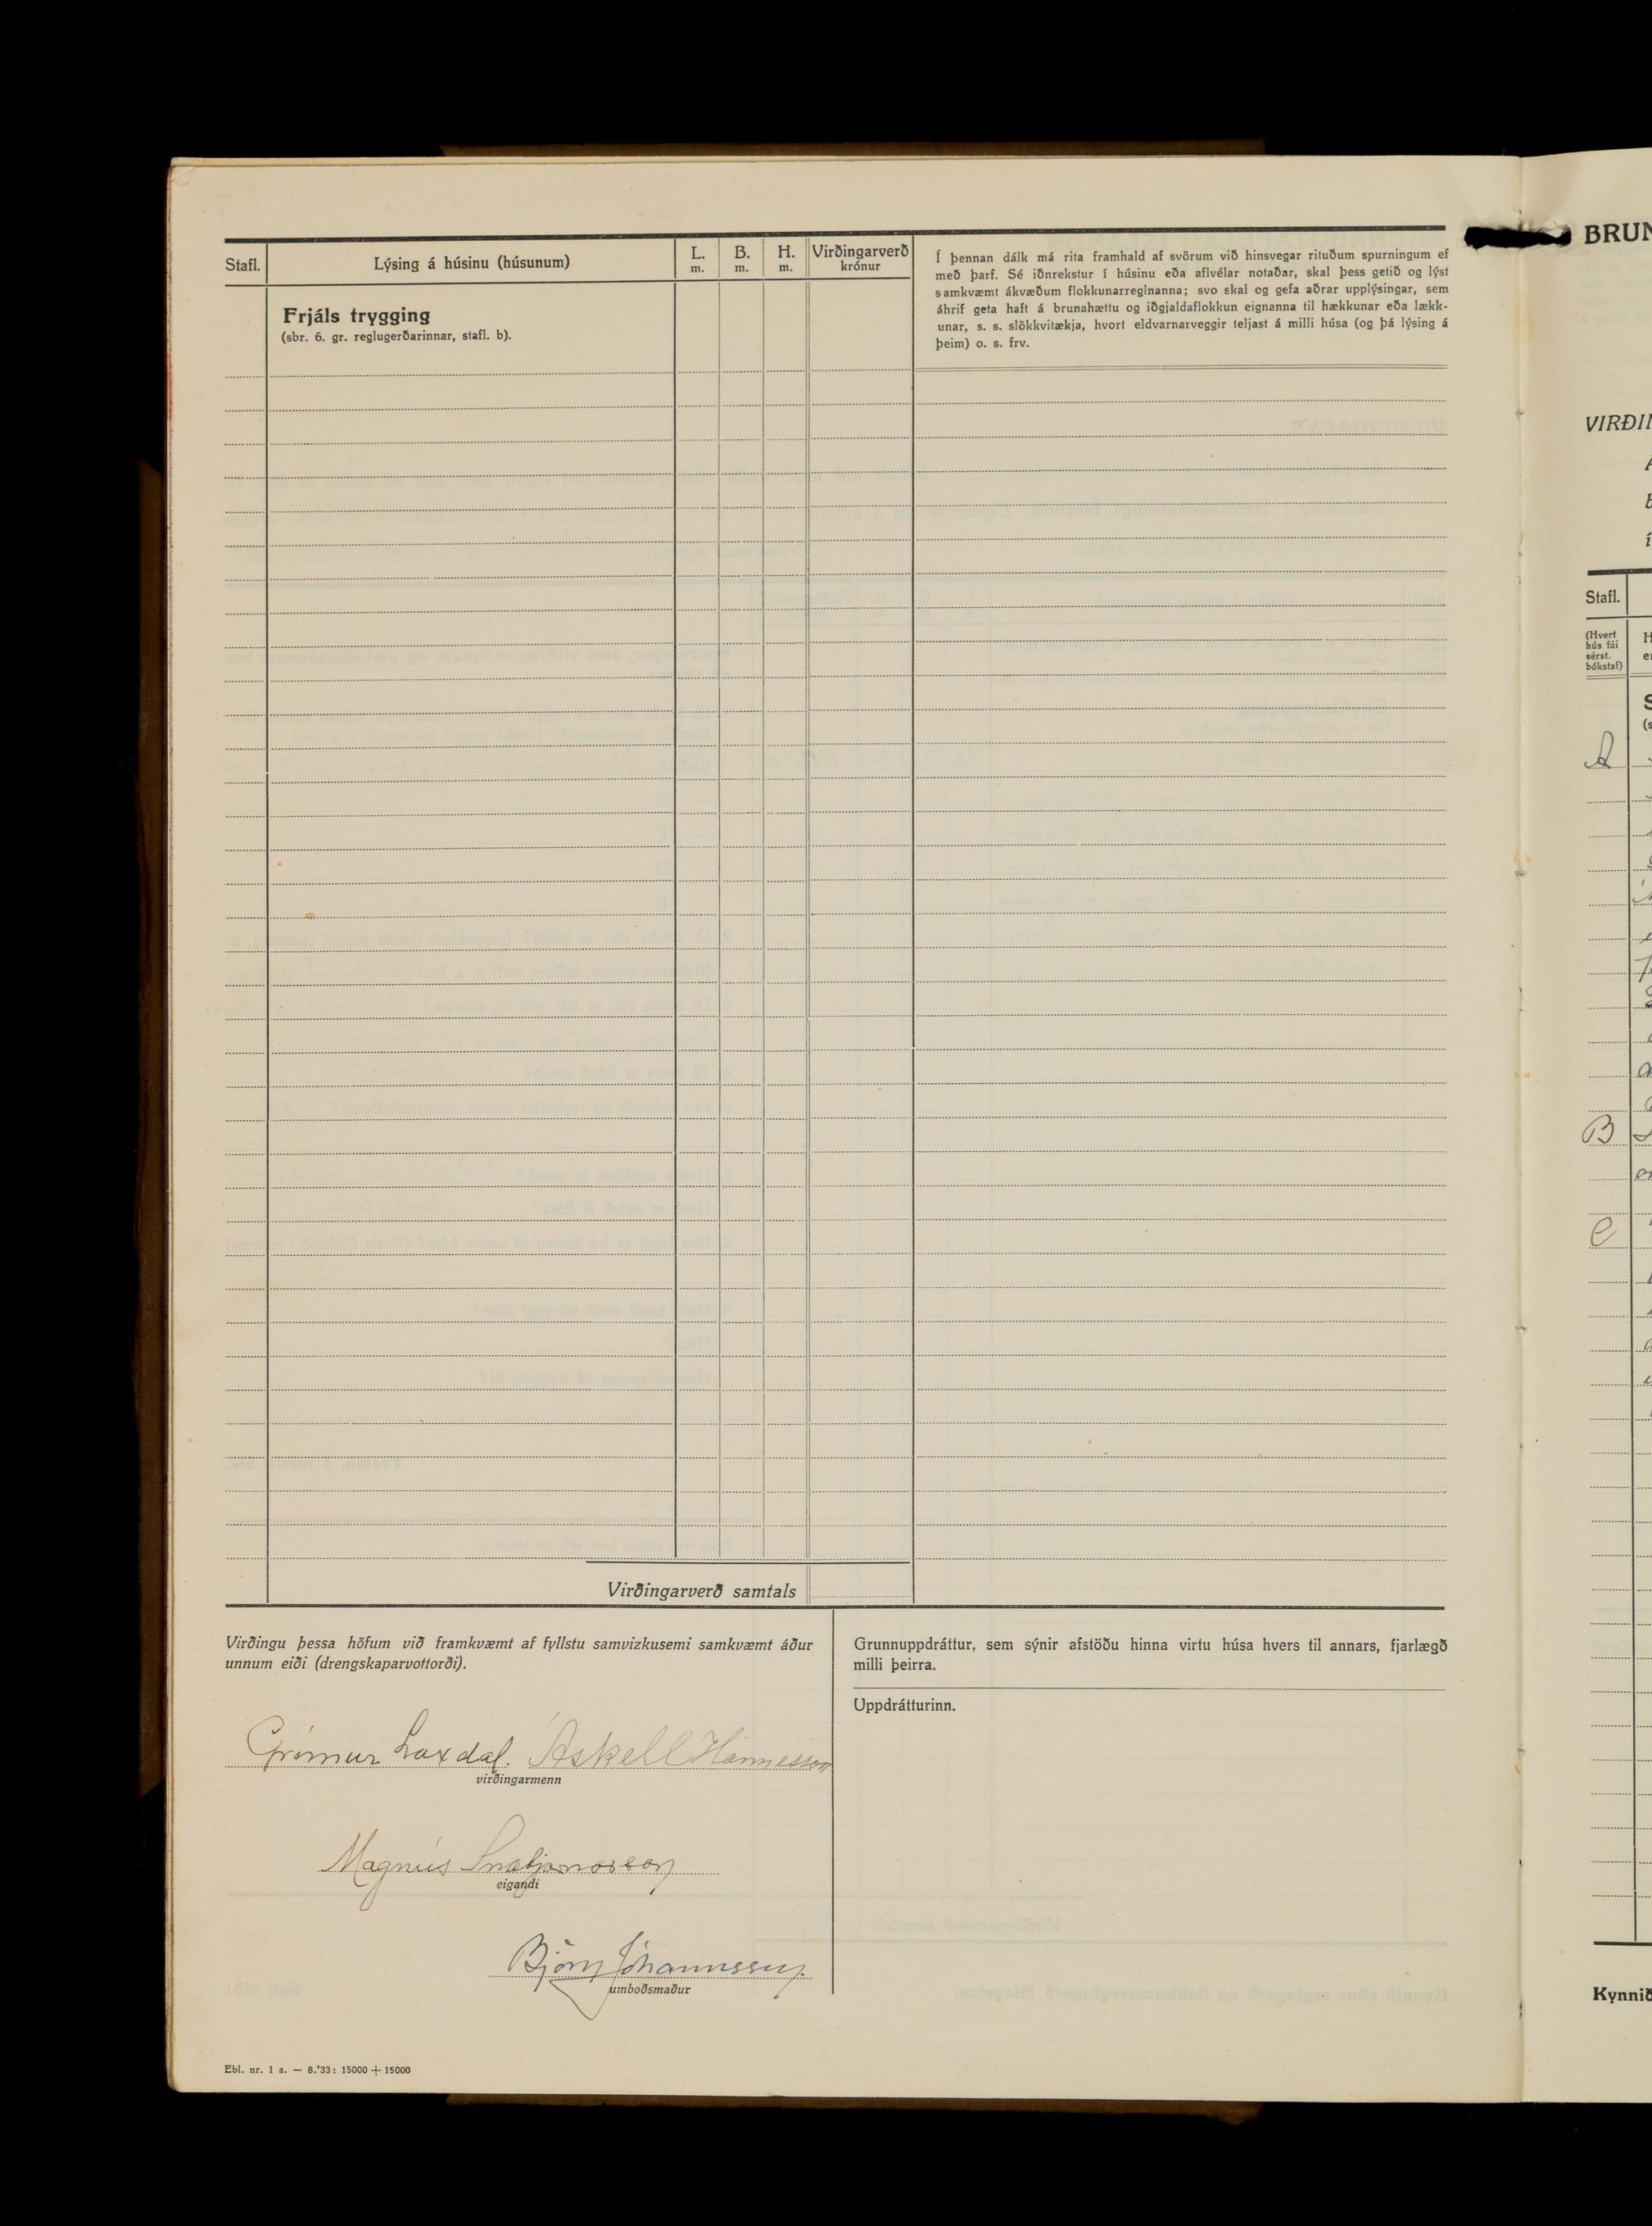 Stafl.
Lýsing á húsinu (húsunum)
L.
m.
B.
m.
H.
m.
Virðingarverð
krónur
Frjáls trygging
(sbr. 6. gr. reglugerðarinnar, stafl. b).
Í þennan dálk má rita framhald af svörum við hinsvegar rituðum spurningum ef
með þarf. Sé iðnrekstur í húsinu eða aflvélar notaðar, skal þess getið og lýst
samkvæmt ákvæðum flokkunarreglnanna; svo skal og gefa aðrar upplýsingar, sem
áhrif geta haft á brunahættu og iðgjaldaflokkun eignanna til hækkunar eða lækk-
unar, s. s. slökkvitækja, hvort eldvarnarveggir teljast á milli húsa (og þá lýsing á
þeim) o. s. frv.
Virðingarverð samtals
Virðingu þessa höfum við framkvæmt af fyllstu samvizkusemi samkvæmt áður
unnum eiði (drengskaparvottorði).
Grímur Laxdal. Áskell Hannesson
virðingarmenn
Magnús Snæbjarnarson
eigandi
Björn Jóhannsson
umboðsmaður
Grunnuppdráttur, sem sýnir afstöðu hinna virtu húsa hvers til annars, fjarlægð
milli þeirra.
Uppdrátturinn.
Ebl. nr. 1 a. — 8.'33: 15000 + 15000
BRUN
VIRÐIN
Stafl.
(Hvert
hús fái
sérst.
bókstaf)
A
B
C
Kynnið